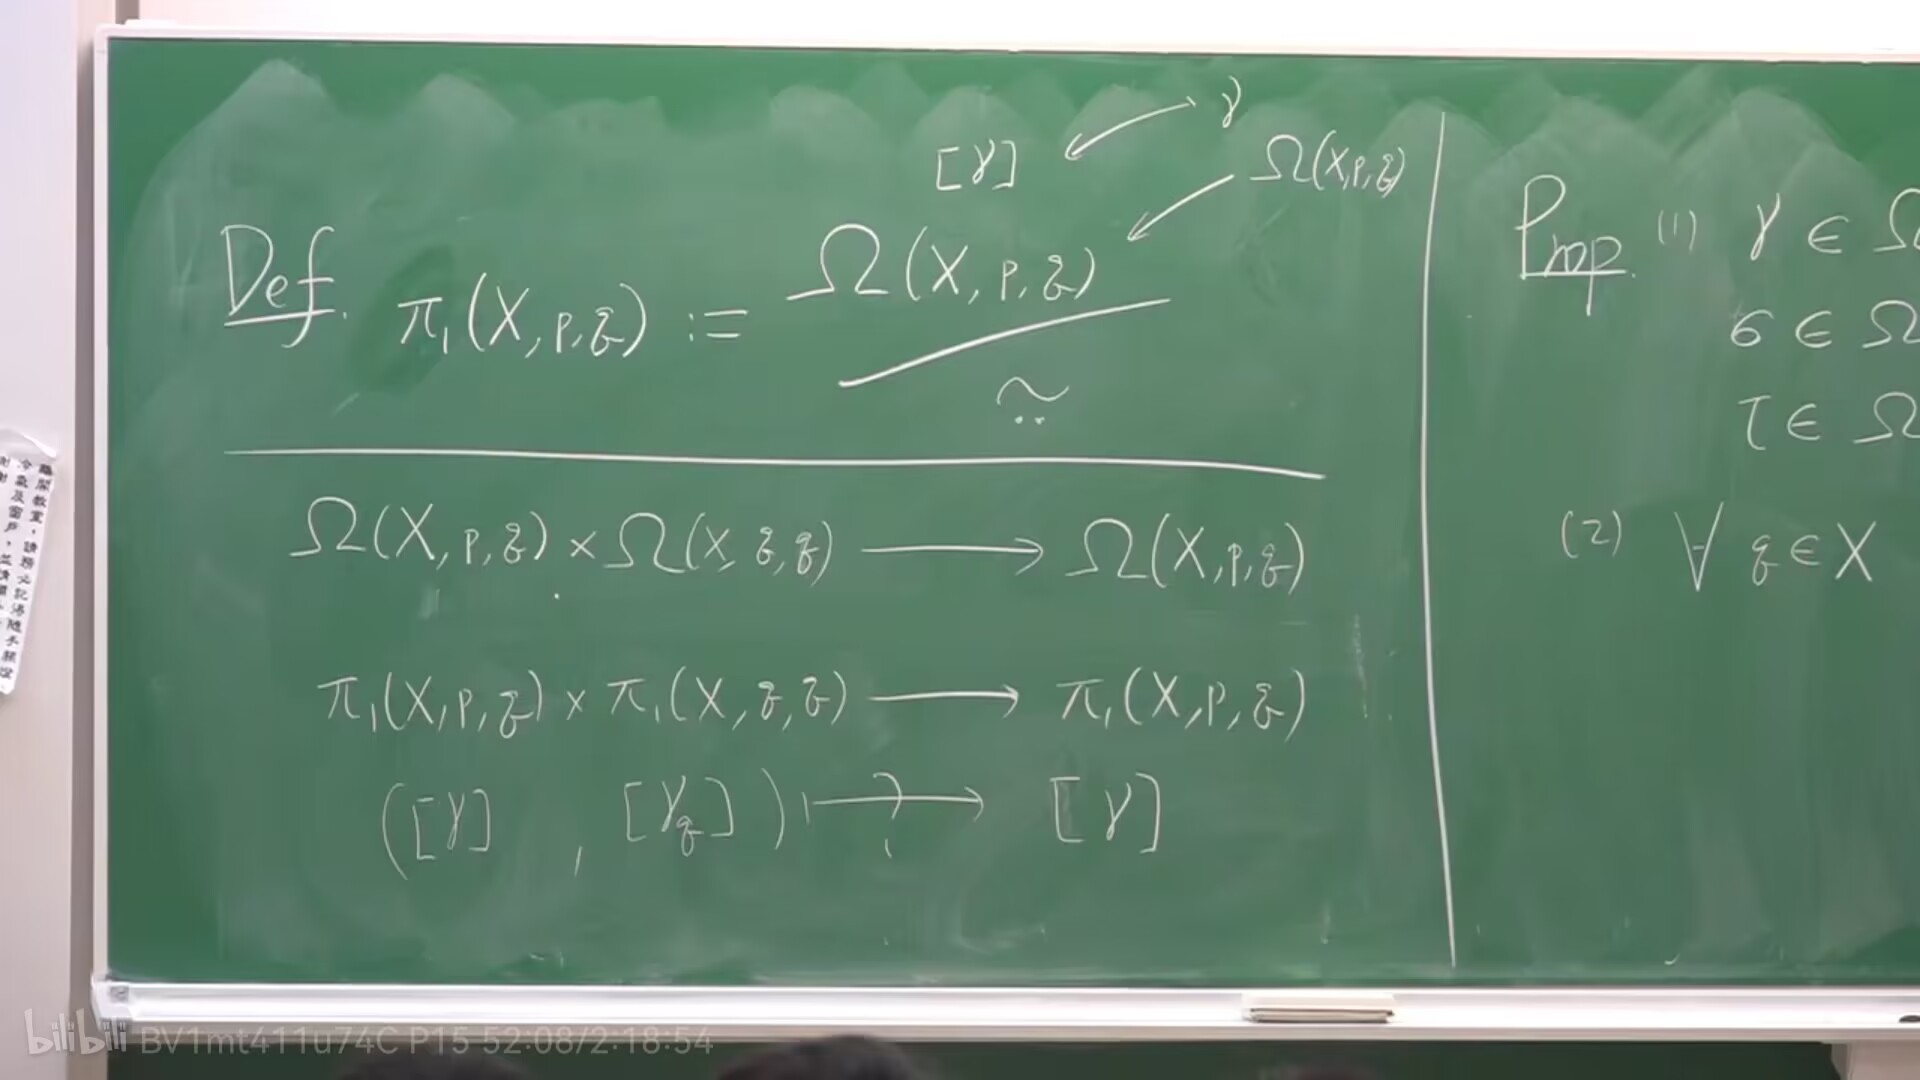 [γ] γ
Ω(X,p,q)
Def. π₁(X,p,q) := Ω(X,p,q) / ≃
Ω(X,p,q) × Ω(X,q,q) ⟶ Ω(X,p,q)
π₁(X,p,q) × π₁(X,q,q) ⟶ π₁(X,p,q)
([γ] , [γq]) ⟼ ? [γ]
Prop. (1) γ ∈ Ω
σ ∈ Ω
τ ∈ Ω
(2) ∀ q ∈ X
離開教室,請務必記得隨手關燈
冷氣及窗戶,並請
謝謝
bilibili BV1mt411u74C P15 52:08/2:18:54